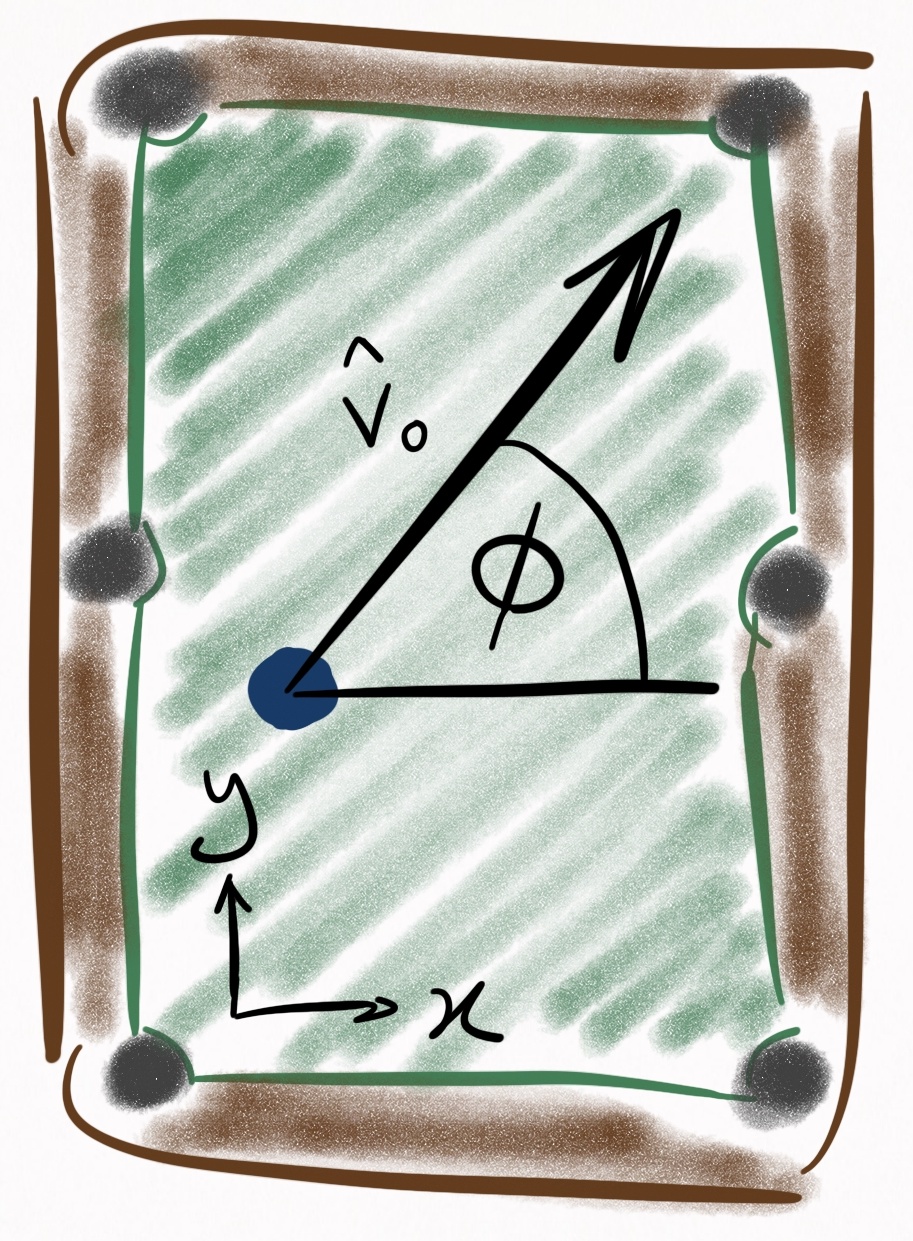 v̂₀
ϕ
y
x